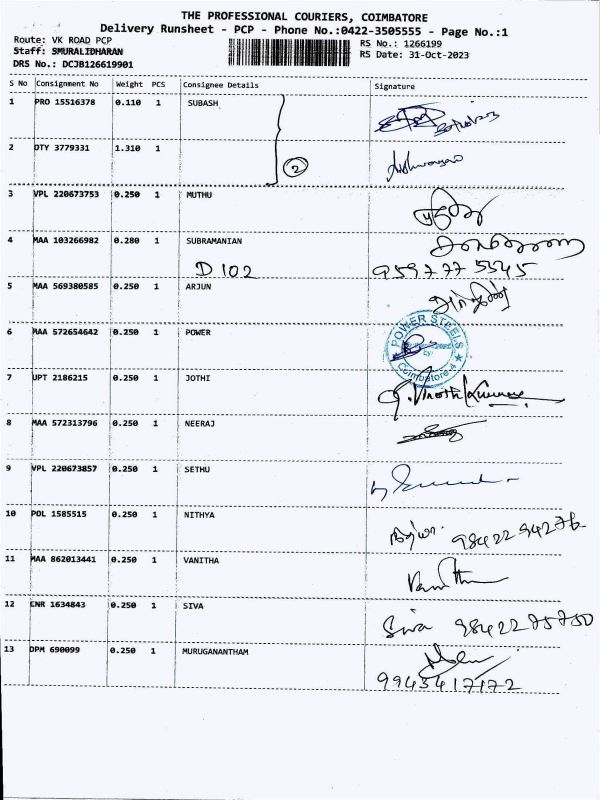 THE PROFESSIONAL COURIERS, COIMBATORE
Delivery Runsheet - PCP - Phone No.:0422-3505555 - Page No.:1
Route: VK ROAD PCP
RS No.: 1266199
Staff: SMURALIDHARAN
RS Date: 31-Oct-2023
DRS No.: DCJB126619901
S No Consignment No Weight PCS Consignee Details Signature
1 PRO 15516378 0.110 1 SUBASH
2 DTY 3779331 1.310 1
2
3 VPL 220673753 0.250 1 MUTHU
4 MAA 103266982 0.280 1 SUBRAMANIAN
D 102 9597775545
5 MAA 569380585 0.250 1 ARJUN
6 MAA 572654642 0.250 1 POWER
POWER STEELS
Coimbatore-4
7 UPT 2186215 0.250 1 JOTHI
8 MAA 572313796 0.250 1 NEERAJ
9 VPL 220673857 0.250 1 SETHU
10 POL 1585515 0.250 1 NITHYA
98422 94276
11 MAA 862013441 0.250 1 VANITHA
12 CNR 1634843 0.250 1 SIVA
Siva 98422 75750
13 DPM 690099 0.250 1 MURUGANANTHAM
9943417172